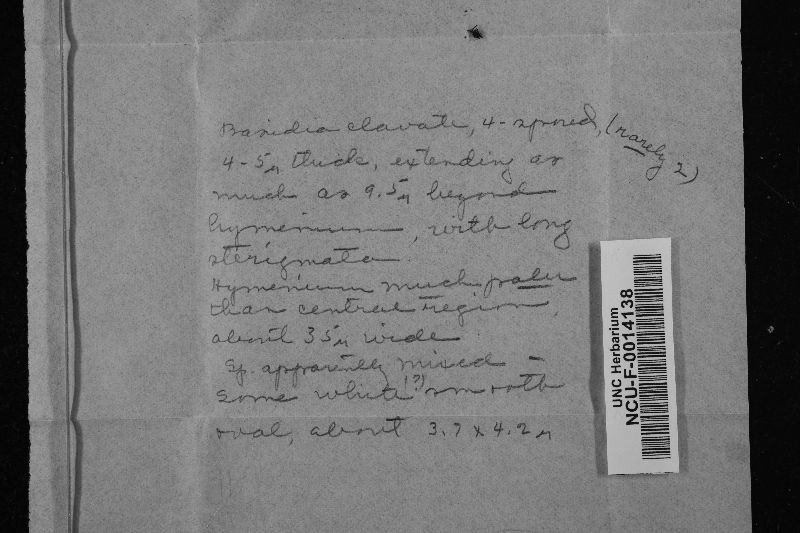 Basidia clavate, 4-spored, (rarely 2)
4-5µ thick, extending as
much as 9.5µ beyond
hymenium, with long
sterigmata.
Hymenium much paler
than central region,
about 35µ wide.
Sp. apparently mixed -
some white (?) smooth
oval, about 3.7 x 4.2µ
UNC Herbarium
NCU-F-0014138